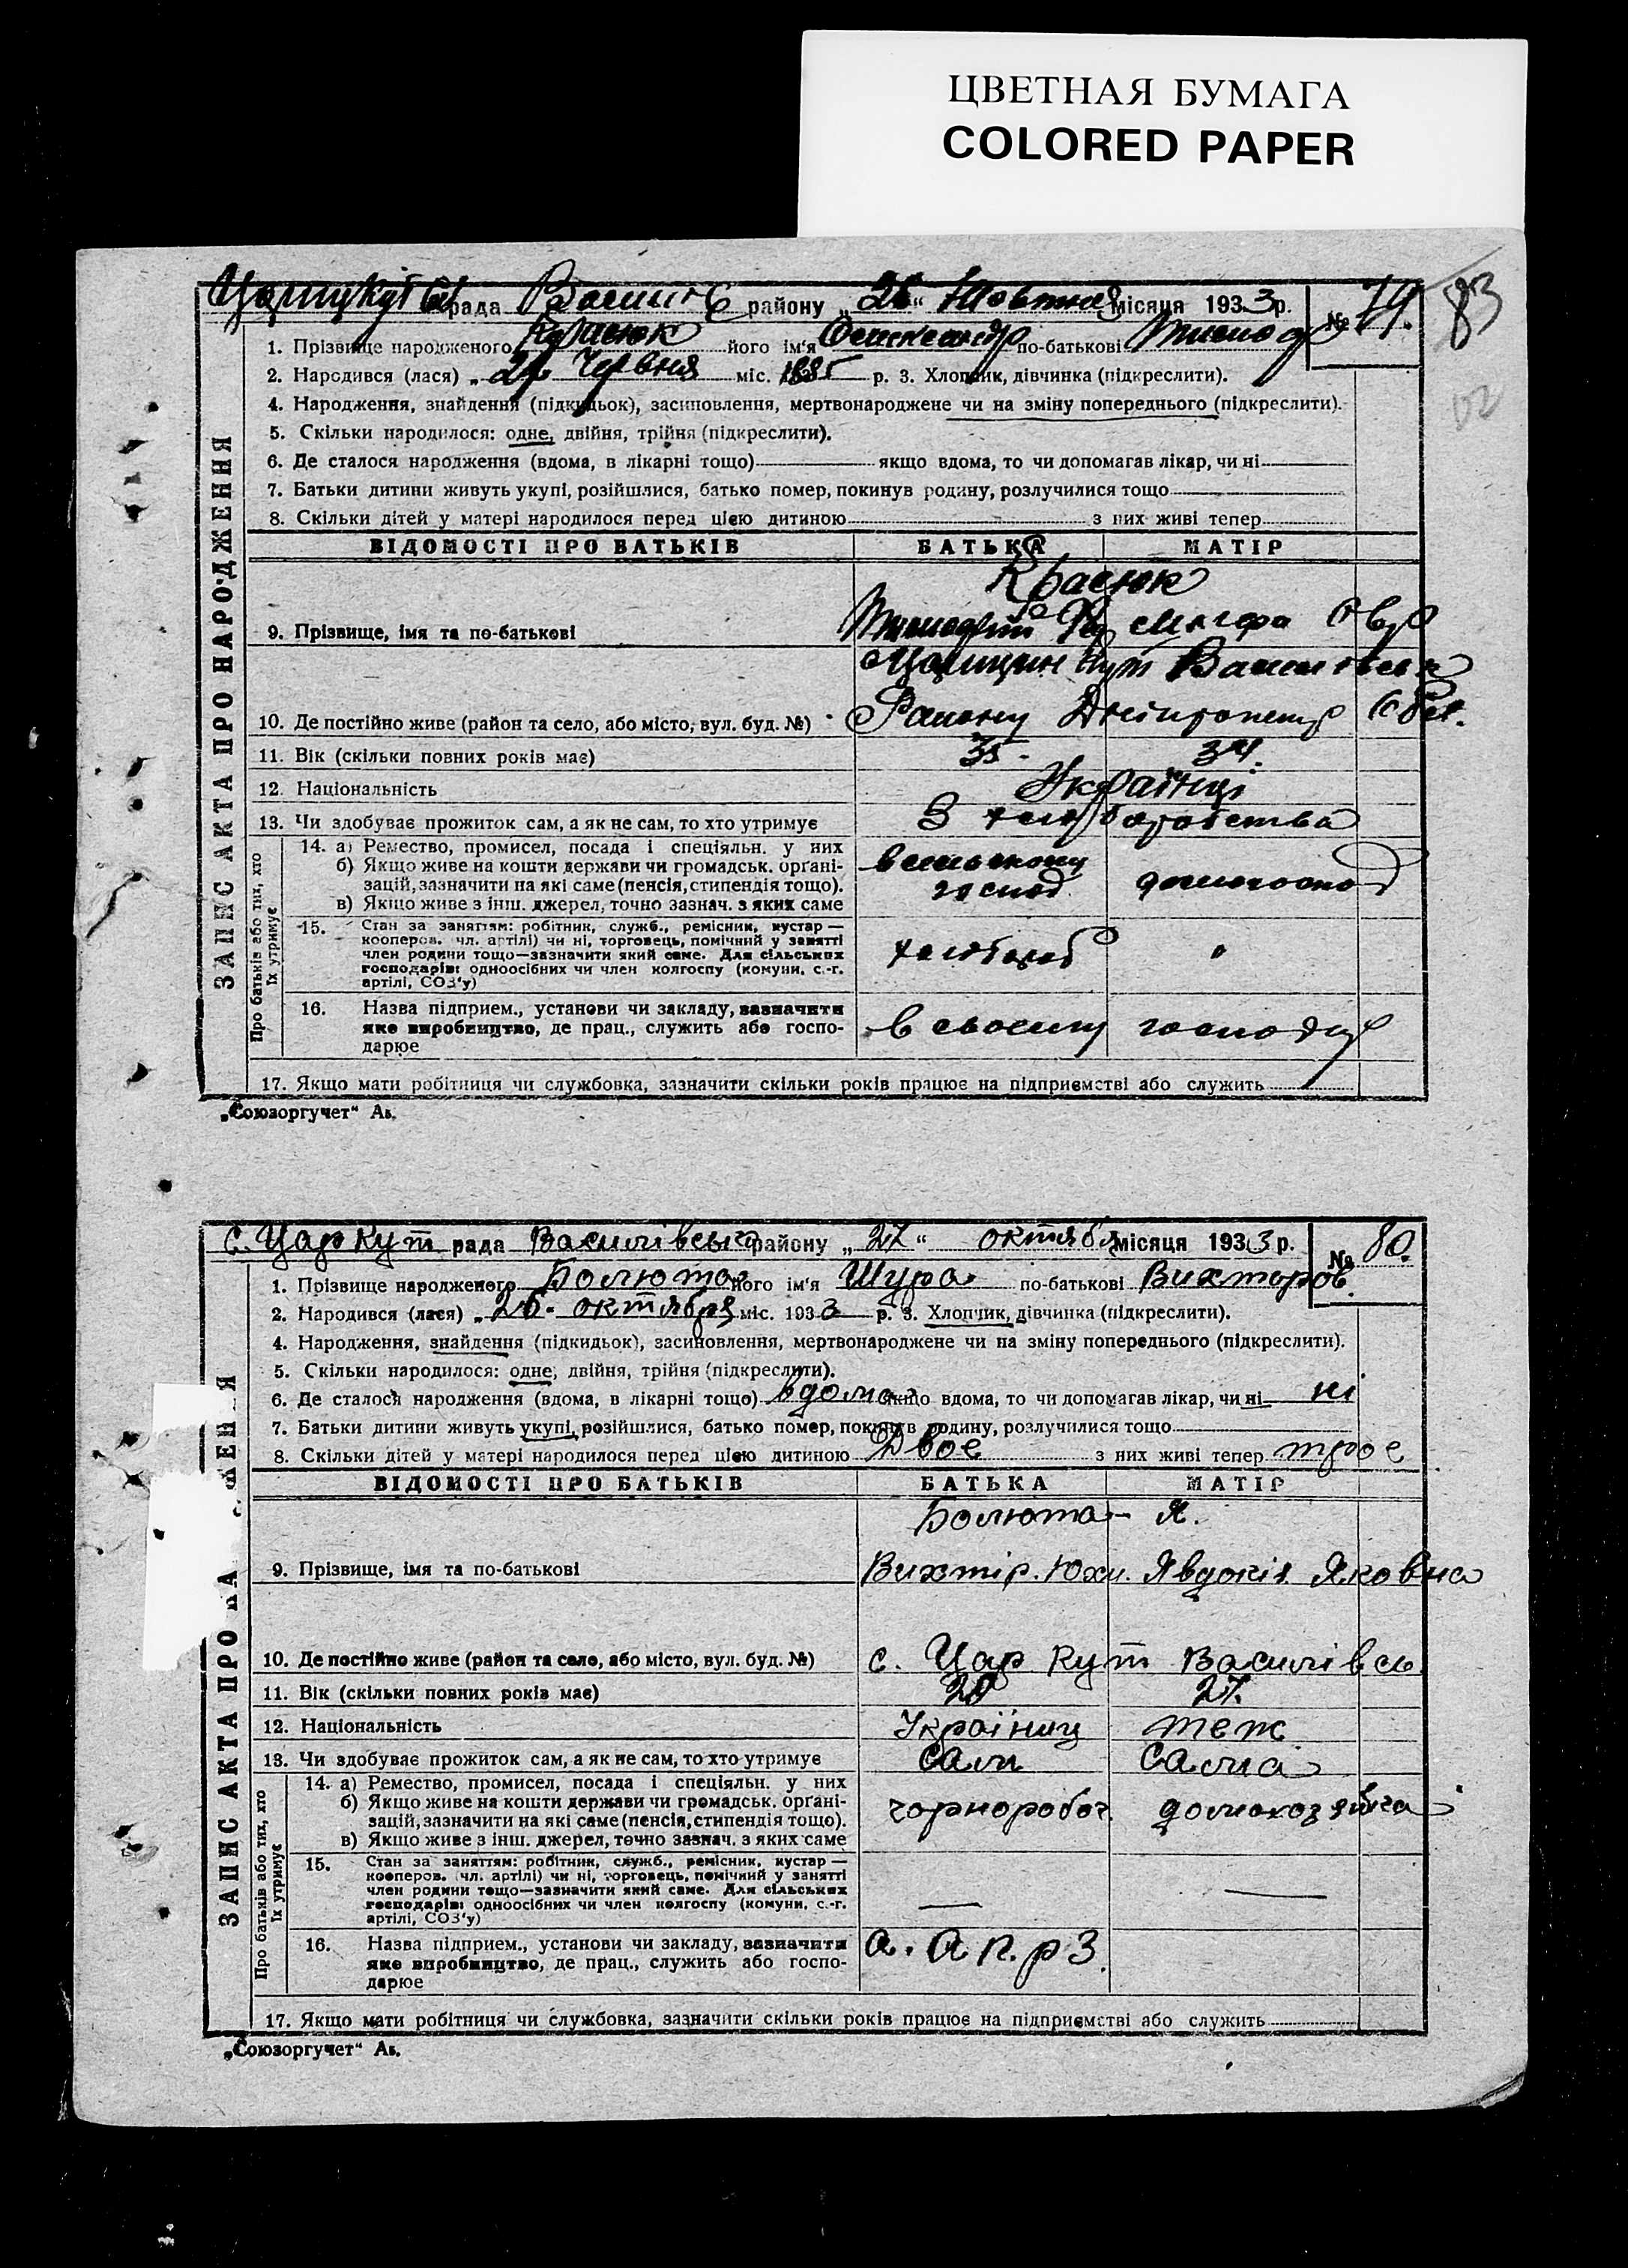 ЦВЕТНАЯ БУМАГА
COLORED PAPER
83
рада района „26“ Жовтня місяця 1933 р. № 79.
1. Прізвище народженого Красюк його ім'я Олександр по-батькові Тимоф
2. Народився (лася) „ Червня міс. 1885 р. 3. Хлопчик, дівчинка (підкреслити).
4. Народження, знайдення (підкидьок), засиновлення, мертвонароджене чи на зміну попереднього (підкреслити).
5. Скільки народилося: одне, двійня, трійня (підкреслити).
6. Де сталося народження (вдома, в лікарні тощо) якщо вдома, то чи допомагав лікар, чи ні
7. Батьки дитини живуть укупі, розійшлися, батько помер, покинув родину, розлучилися тощо
8. Скільки дітей у матері народилося перед цією дитиною з них живі тепер
ЗАПИС АКТА ПРО НАРОДЖЕННЯ
ВІДОМОСТІ ПРО БАТЬКІВ БАТЬКА МАТІР
Красюк
9. Прізвище, імя та по-батькові
Царицин Кут Василівськ
10. Де постійно живе (район та село, або місто, вул. буд. №) Району Дніпропетр Обл.
11. Вік (скільки повних років має) 35 34.
12. Національність Українці
13. Чи здобуває прожиток сам, а як не сам, то хто утримує З хліборобства
Про батьків або тих, хто їх утримує
14. а) Ремество, промисел, посада і спеціяльн. у них
б) Якщо живе на кошти держави чи громадськ. орґані-
зацій, зазначити на які саме (пенсія, стипендія тощо).
в) Якщо живе з інш. джерел, точно зазнач. з яких саме
в сільському
господ домогоспод
15. Стан за заняттям: робітник, служб., ремісник, кустар —
коопеpов. чл. артілі) чи ні, торговець, помічний у занятті
член родини тощо—зазначити який саме. Для сільських
господарів: одноосібних чи член колгоспу (комуни, с.-г.
артілі, СОЗ'у)
хлібороб "
16. Назва підприєм., установи чи закладу, зазначити
яке виробництво, де прац., служить або госпо-
дарює
в своєму господ
17. Якщо мати робітниця чи службовка, зазначити скільки років працює на підприємстві або служить
„Союзоргучет“ Ав.
с. Цар Кут рада Василівсько району „27“ октября місяця 1933 р. № 80.
1. Прізвище народженого Болюта його ім'я Шура по-батькові Вихторов.
2. Народився (лася) „26. октября міс. 1933 р. 3. Хлопчик, дівчинка (підкреслити).
4. Народження, знайдення (підкидьок), засиновлення, мертвонароджене чи на зміну попереднього (підкреслити).
5. Скільки народилося: одне, двійня, трійня (підкреслити).
6. Де сталося народження (вдома, в лікарні тощо) вдома якщо вдома, то чи допомагав лікар, чи ні ні
7. Батьки дитини живуть укупі, розійшлися, батько помер, покинув родину, розлучилися тощо
8. Скільки дітей у матері народилося перед цією дитиною Двоє з них живі тепер троє
ВІДОМОСТІ ПРО БАТЬКІВ БАТЬКА МАТІР
Болюта - Я.
9. Прізвище, імя та по-батькові Вихтір. Юхи. Явдокія Яковна
10. Де постійно живе (район та село, або місто, вул. буд. №) с. Цар Кут Василівсь
11. Вік (скільки повних років має) 27.
12. Національність Україниц теж
13. Чи здобуває прожиток сам, а як не сам, то хто утримує Сам Сама
Про батьків або тих, хто їх утримує
14. а) Ремество, промисел, посада і спеціяльн. у них
б) Якщо живе на кошти держави чи громадськ. орґані-
зацій, зазначити на які саме (пенсія, стипендія тощо).
в) Якщо живе з інш. джерел, точно зазнач. з яких саме
чорноробоч. домохозяйка
15. Стан за заняттям: робітник, служб., ремісник, кустар —
кооперов. чл. артілі) чи ні, торговець, помічний у занятті
член родини тощо—зазначити який саме. Для сільських
господарів: одноосібних чи член колгоспу (комуни, с.-г.
артілі, СОЗ'у)
16. Назва підприєм., установи чи закладу, зазначити
яке виробництво, де прац., служить або госпо-
дарює
17. Якщо мати робітниця чи службовка, зазначити скільки років працює на підприємстві або служить
„Союзоргучет“ Ав.